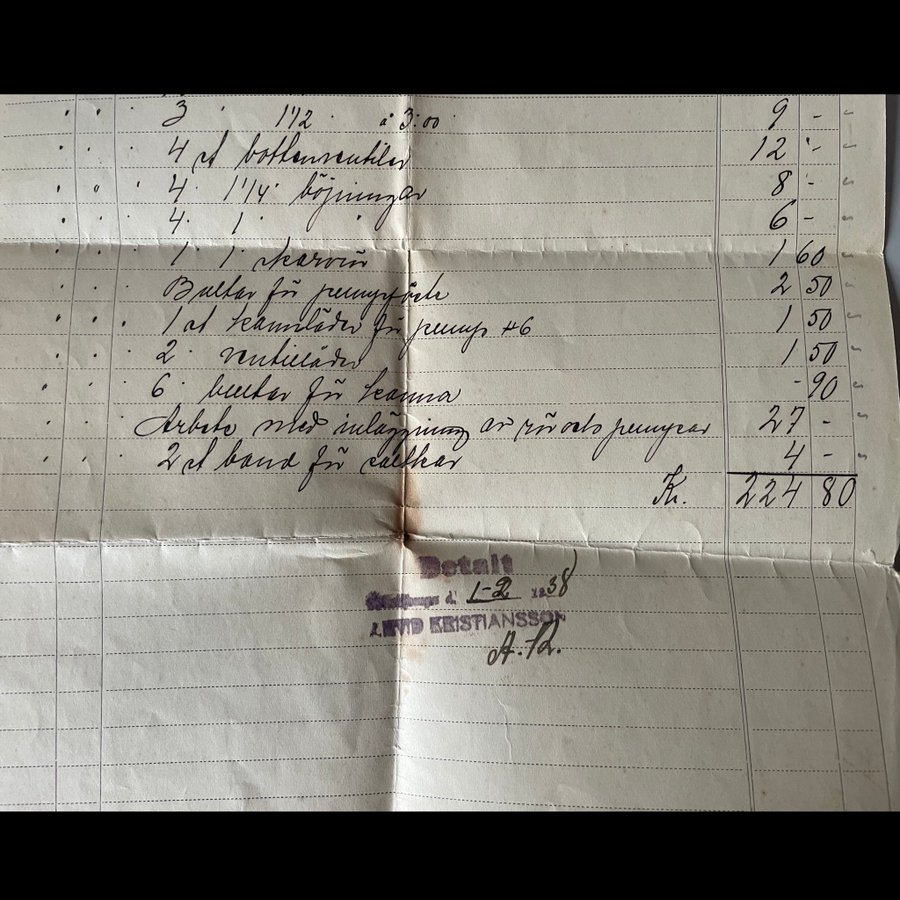 3 " 1 1/2 " à 3:00 9 -
4 st bottenventiler 12 -
4 " 1 1/4" böjningar 8 -
4 " 1 " " 6 -
1 " 1" skarvrör 1 60
Bultar för pumpstöck 2 50
1 st kannläder för pump #6 1 50
2 " ventilläder 1 50
6 " bultar för kanna - 90
Arbete med inläggning av rör och pumpar 27 -
2 st band för saltkar 4 -
Kr. 224 80
Betalt
d. 1-2 1938
ARVID KRISTIANSSON
A. K.